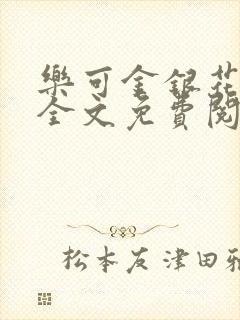 樂可金銀花
全文免費閱
松本友津田雅